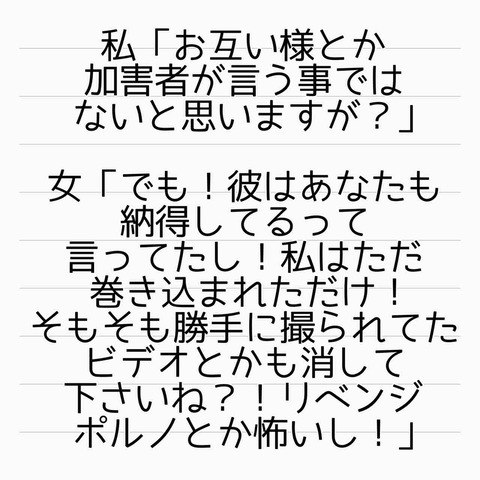 私「お互い様とか
加害者が言う事では
ないと思いますが？」
女「でも！彼はあなたも
納得してるって
言ってたし！私はただ
巻き込まれただけ！
そもそも勝手に撮られてた
ビデオとかも消して
下さいね？！リベンジ
ポルノとか怖いし！」